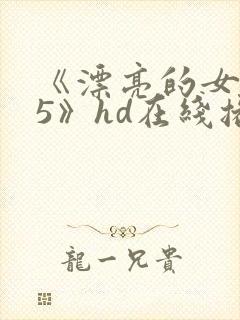 《漂亮的女
5》hd在綫播
龍一兄貴